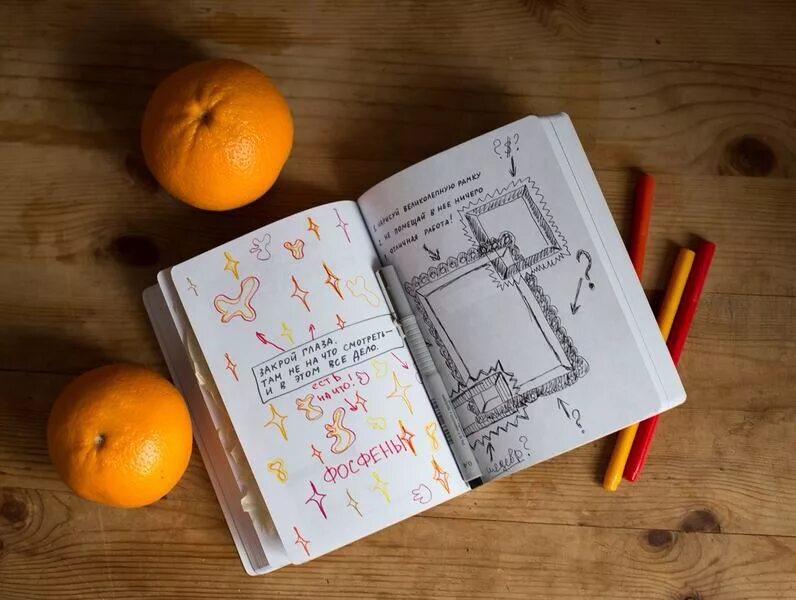 ЗАКРОЙ ГЛАЗА.
ТАМ НЕ НА ЧТО СМОТРЕТЬ—
И В ЭТОМ ВСЕ ДЕЛО.
ЕСТЬ
НА ЧТО!
ФОСФЕНЫ
1. НАРИСУЙ ВЕЛИКОЛЕПНУЮ РАМКУ
2. НЕ ПОМЕЩАЙ В НЕЕ НИЧЕГО
ОТЛИЧНАЯ РАБОТА!
?$?
?
?
шедевр?